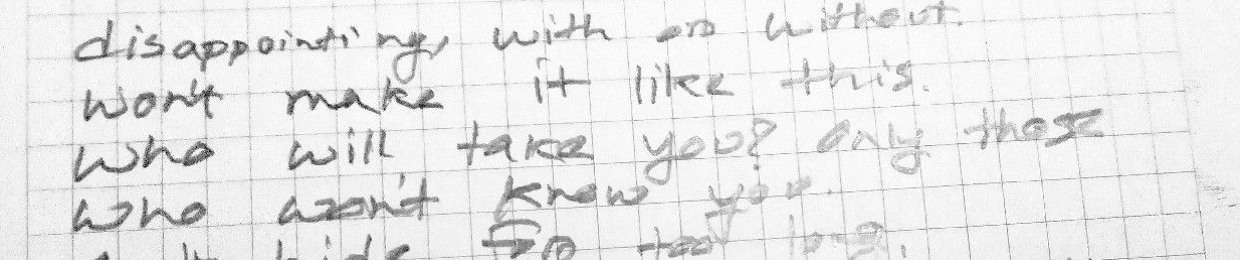 disappointing, with or without.
won't make it like this.
who will take you? only those
who won't know you.
hide for too long.